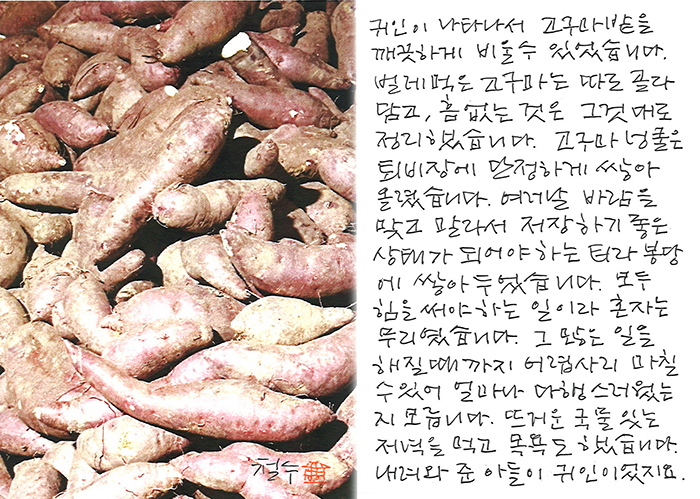 귀인이 나타나서 고구마밭을
깨끗하게 비울수 있었습니다.
벌레먹은 고구마는 따로 골라
담고, 흠 없는 것은 그것대로
정리했습니다. 고구마 넝쿨은
퇴비장에 단정하게 쌓아
올렸습니다. 여러날 바람을
맞고 말라서 저장하기 좋은
상태가 되어야 하는 터라 봉당
에 쌓아 두었습니다. 모두
힘을 써야 하는 일이라 혼자는
무리였습니다. 그 많은 일을
해질 때까지 어렵사리 마칠
수 있어 얼마나 다행스러웠는
지 모릅니다. 뜨거운 국물 있는
저녁을 먹고 목욕도 했습니다.
내려와 준 아들이 귀인이었지요.
철수